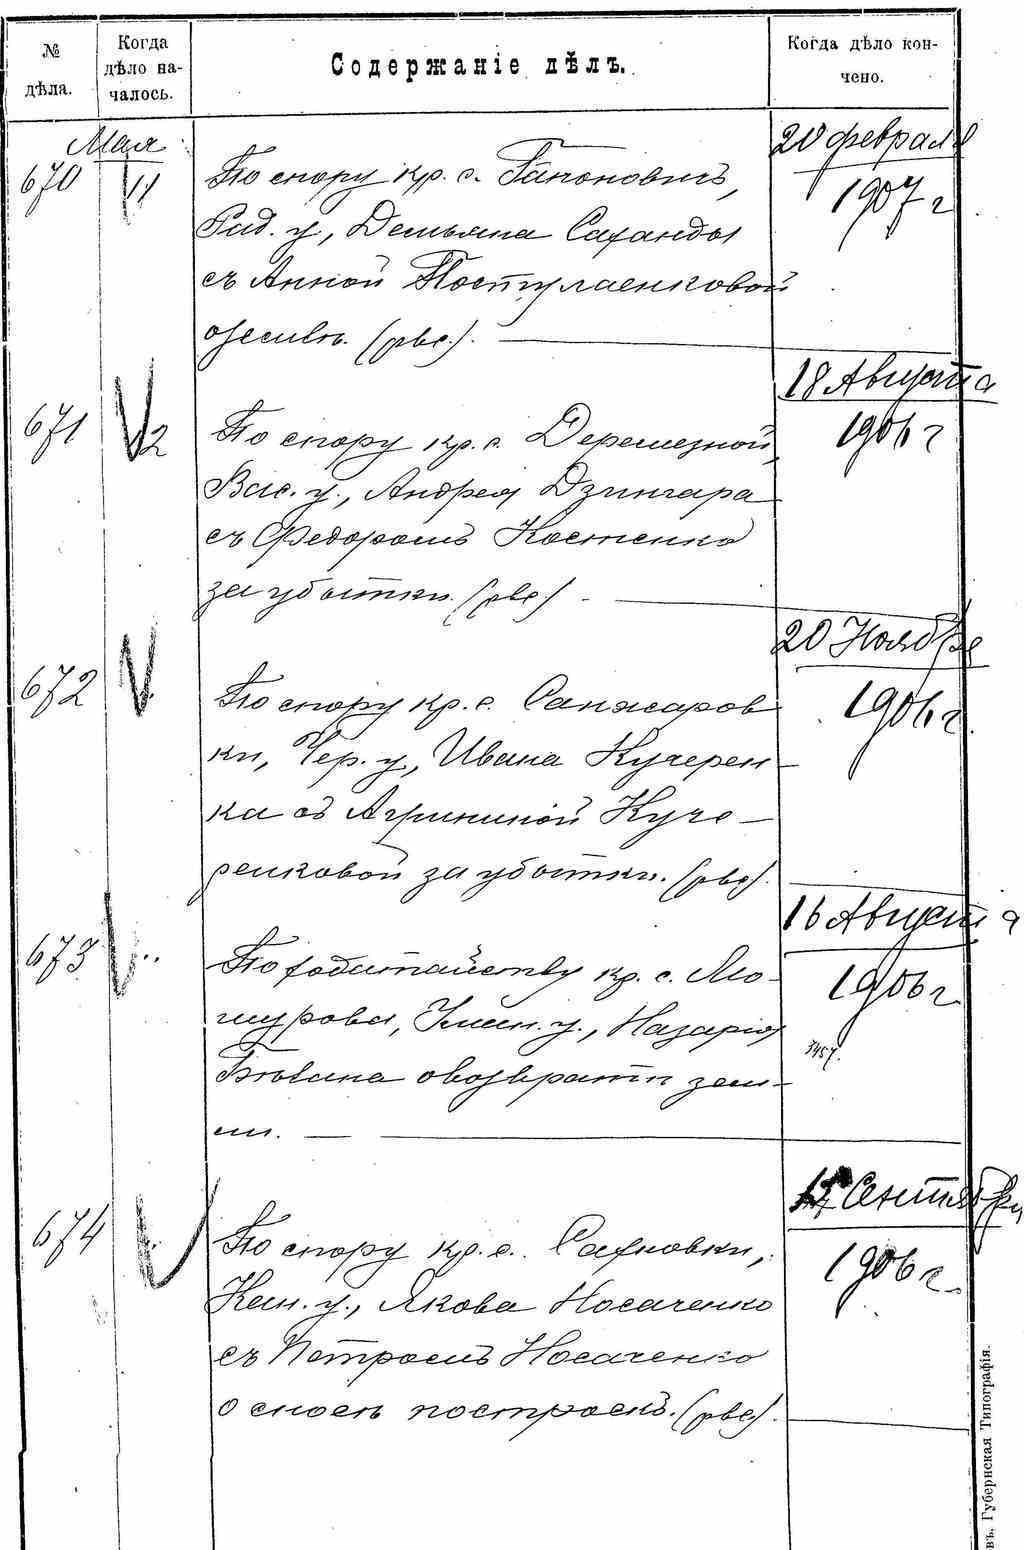 № дѣла.
Когда дѣло на-
чалось.
Содержаніе дѣлъ.
Когда дѣло кон-
чено.
Мая
670
11
По спору кр. с. Гапоновичъ,
Рад. у., Демьяна Саханды
съ Анной Постулаенковой
о землѣ. (рвс.).
20 февраля
1907 г
671
12
По спору кр. с. Деремезной,
Вас. у., Андрея Дзингара
съ Федоромъ Костенко
за убытки. (рвс)
18 Августа
1906 г
672
По спору кр. с. Санжаров
ки, Чер. у., Ивана Кучерен-
ка съ Агрипиной Куче-
ренковой за убытки. (рвс).
20 Ноября
1906 г.
673
По ходатайству кр. с. Мо-
шурова, Уман. у., Назарія
о возвратѣ зем-
ли.
16 Августа
1906 г
3457.
674
По спору кр. с. Сахновки,
Кан. у., Якова Носаченко
съ Петромъ Носаченко
о сносѣ построекъ. (рвс).
Сентября
1906 г.
въ, Губернская Типографія.